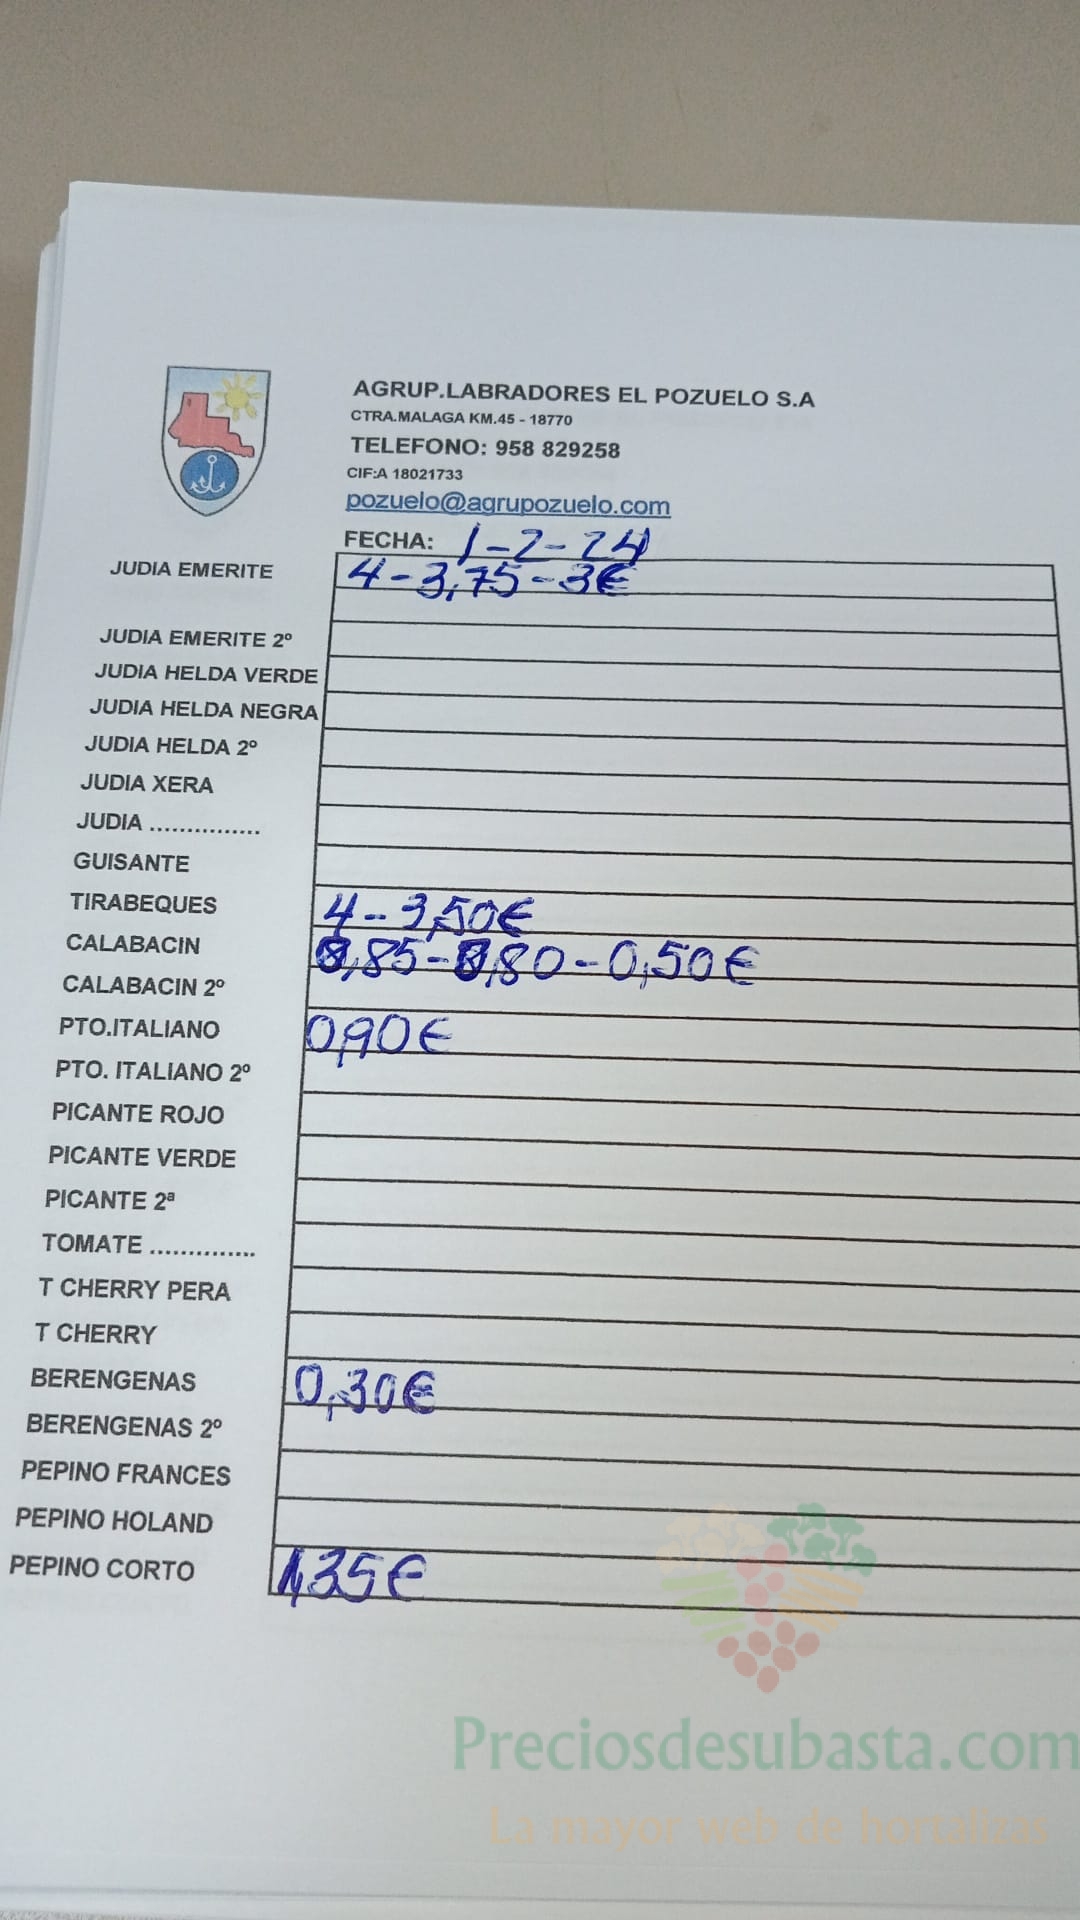 AGRUP.LABRADORES EL POZUELO S.A
CTRA.MALAGA KM.45 - 18770
TELEFONO: 958 829258
CIF:A 18021733
pozuelo@agrupozuelo.com
FECHA: 1-2-24
JUDIA EMERITE 4-3,75-3€
JUDIA EMERITE 2º
JUDIA HELDA VERDE
JUDIA HELDA NEGRA
JUDIA HELDA 2º
JUDIA XERA
JUDIA ...............
GUISANTE
TIRABEQUES 4-3,50€
CALABACIN 0,85-0,80-0,50€
CALABACIN 2º
PTO.ITALIANO 0,90€
PTO. ITALIANO 2º
PICANTE ROJO
PICANTE VERDE
PICANTE 2ª
TOMATE ..............
T CHERRY PERA
T CHERRY
BERENGENAS 0,30€
BERENGENAS 2º
PEPINO FRANCES
PEPINO HOLAND
PEPINO CORTO 1,35€
Preciosdesubasta.com
La mayor web de hortalizas